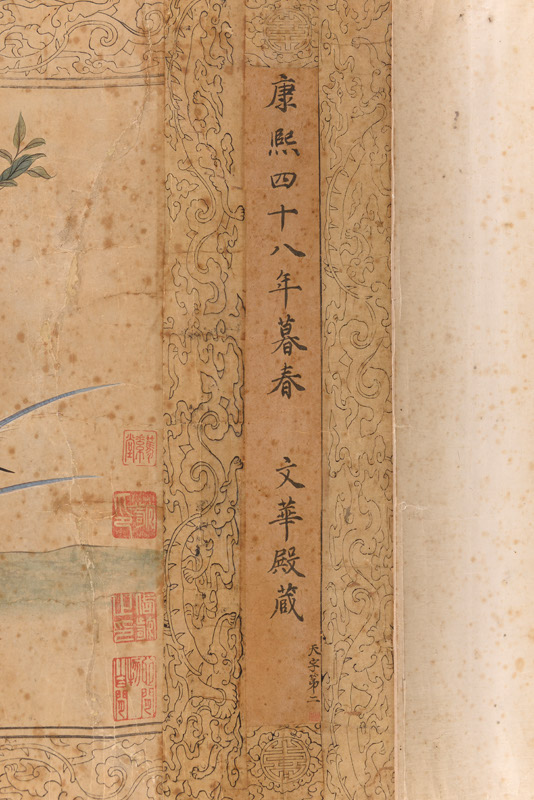 康熙四十八年暮春 文華殿藏
天字第二